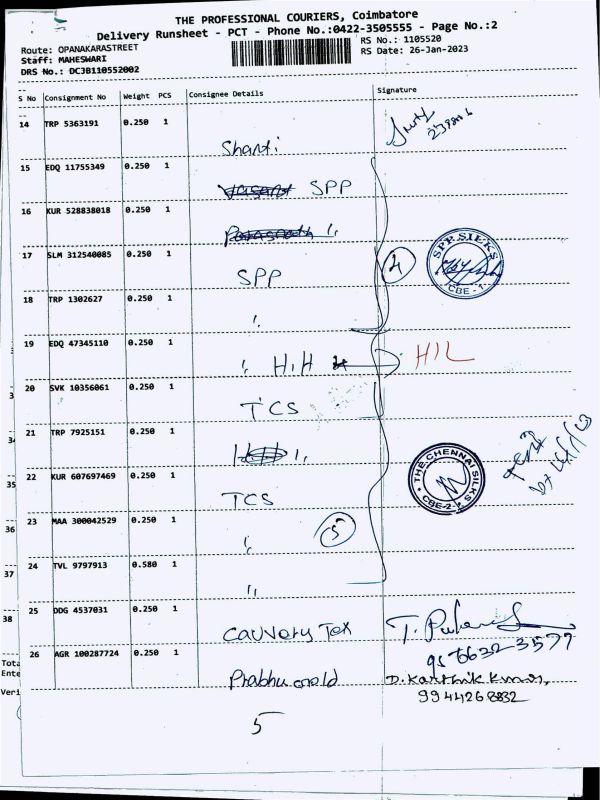 THE PROFESSIONAL COURIERS, Coimbatore
Delivery Runsheet - PCT - Phone No.:0422-3505555 - Page No.:2
Route: OPANAKARASTREET
RS No.: 1105520
Staff: MAHESWARI
RS Date: 26-Jan-2023
DRS No.: DC3B110552002
S No Consignment No Weight PCS Consignee Details Signature
14 TRP 5363191 0.250 1
Shanti
15 EDQ 11755349 0.250 1
SPP
16 KUR 528838018 0.250 1
17 SLM 312540085 0.250 1
SPP
4
SPP.SILKS
CBE-1
18 TRP 1302627 0.250 1
19 EDQ 47345110 0.250 1
H.H
HIL
20 SVK 10356061 0.250 1
TCS
21 TRP 7925151 0.250 1
22 KUR 607697469 0.250 1
TCS
THE CHENNAI SILKS
CBE-2
23 MAA 300042529 0.250 1
5
24 TVL 9797913 0.580 1
25 DDG 4537031 0.250 1
Cauvery Tex
26 AGR 100287724 0.250 1
Prabhu
D. Karthik Kumar,
5
3
34
35
36
37
38
Tota
Ente
Veri